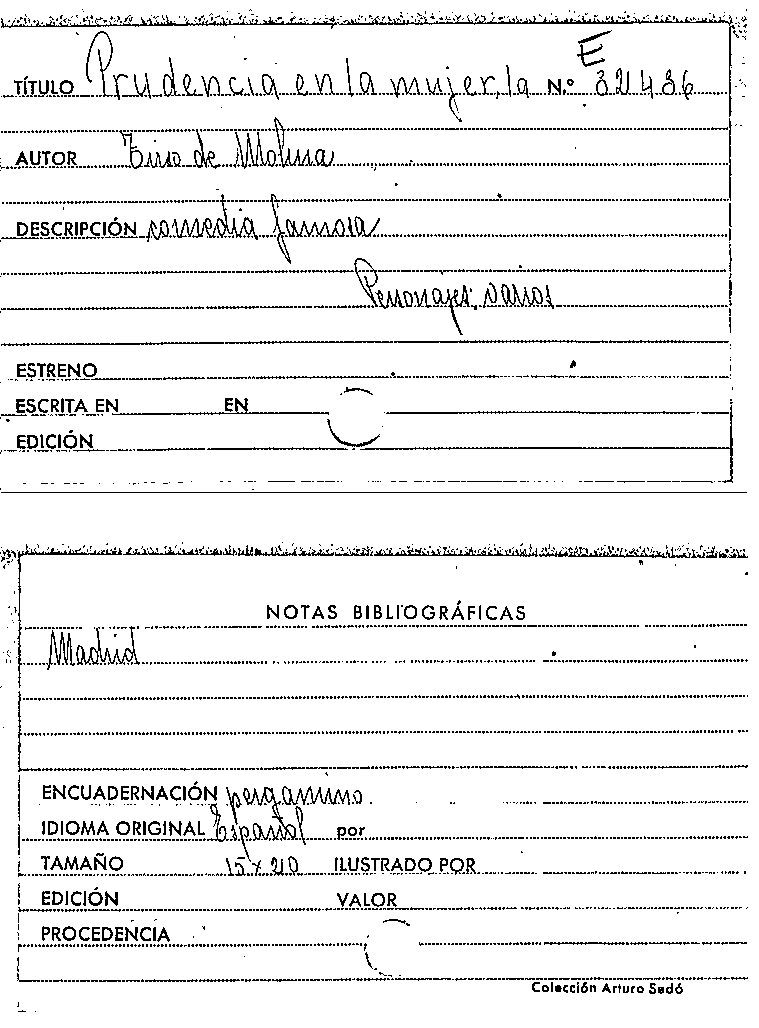 E
TÍTULO Prudencia en la mujer, la N.º 32436
AUTOR Tirso de Molina
DESCRIPCIÓN comedia famosa
Personajes: varios
ESTRENO
ESCRITA EN EN
EDICIÓN
NOTAS BIBLIOGRÁFICAS
Madrid
ENCUADERNACIÓN pergamino.
IDIOMA ORIGINAL Español por
TAMAÑO 15 x 20 ILUSTRADO POR
EDICIÓN VALOR
PROCEDENCIA
Colección Arturo Sedó